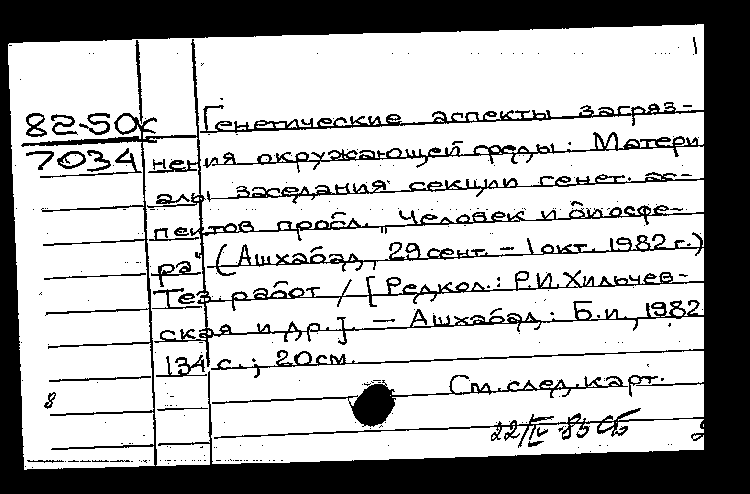 1
82-50к
7034
Генетические аспекты загряз-
нения окружающей среды: Матери
алы заседания секции генет. ас-
пектов пробл. „Человек и биосфе-
ра" (Ашхабад, 29 сент. - 1 окт. 1982 г.)
Тез. работ / [Редкол.: Р.И. Хильчев-
ская и др.]. - Ашхабад: Б.и., 1982
134 с.; 20 см.
См. след. карт.
8
22/IV-85